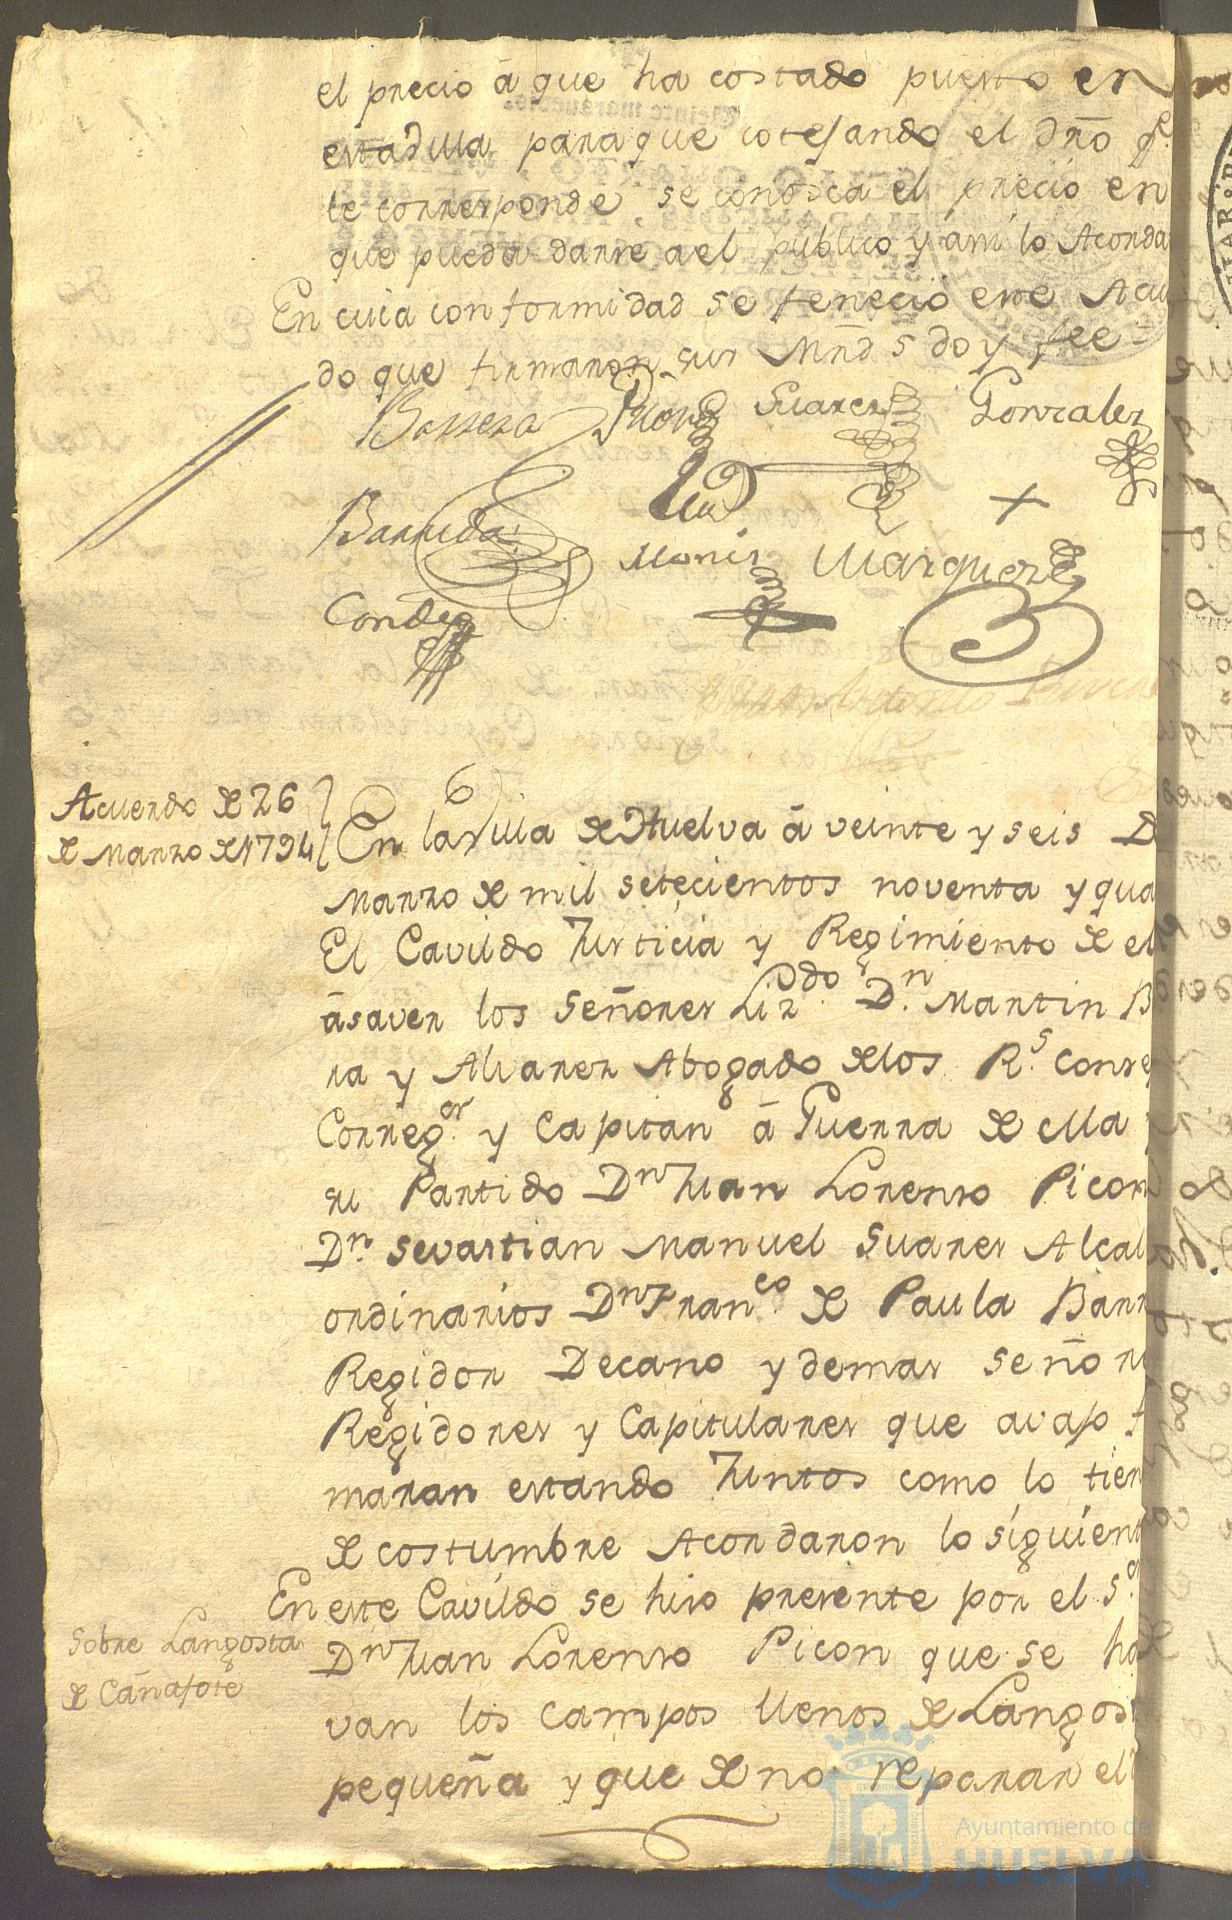 el precio â que ha costado puesto en
estadilla para que cotejando el dr̃o qe.
le corresponde, se conosca el precio en
que pueda darse a el publico y ási lo Acorda
En cuia conformidad se feneció este Acu
do que firmaron sus Mrds doy fee
Barrera Suarez Gonzalez
Barreda Monis Marquez
Conde
Acuerdo de 26
de Marzo de 1794
En la Villa de Huelva â veinte y seis D
Marzo de mil setecientos noventa y qua
El Cavildo Justicia y Regimiento de el
âsaver los Señores Lizdo. Dn. Martin B
ra y Alvarez Abogado delos Rs. Conse
Corregor. y Capitan â Guerra de ella
su Partido Dn Juan Lorenzo Picon
Dn. Sevastian Manuel Suares Alcal
ordinarios Dn Franco. de Paula Barr
Regidor Decano y demas Señor
Regidores y Capitulares que avajo f
maran estando Juntos como lo tien
de costumbre Acordaron lo siguient
En este Cavildo se hiso presente por el Sor
Sobre Langosta
de Cañafote
Dn Juan Lorenso Picon que se ha
van los campos llenos de Langost
pequeña y que de no reparar el
Ayuntamiento de
HUELVA